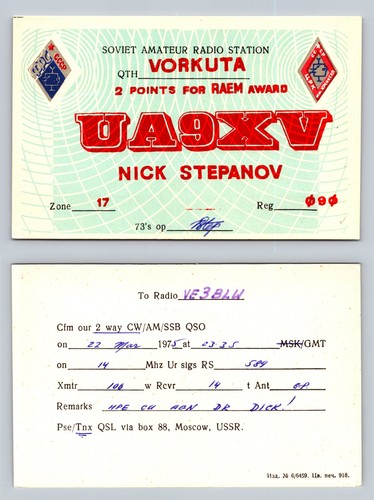 SOVIET AMATEUR RADIO STATION
QTH VORKUTA
2 POINTS FOR RAEM AWARD
UA9XV
NICK STEPANOV
Zone 17 Reg 090
73's op
СССР
To Radio VE3BLU
Cfm our 2 way CW/AM/SSB QSO
on 22 Mar 1975 at 2335 MSK/GMT
on 14 Mhz Ur sigs RS 589
Xmtr 100 w Rcvr 14 t Ant GP
Remarks HPE CU AGN DR DICK!
Pse/Tnx QSL via box 88, Moscow, USSR.
Изд. № 6/6459. Цв. печ. 918.